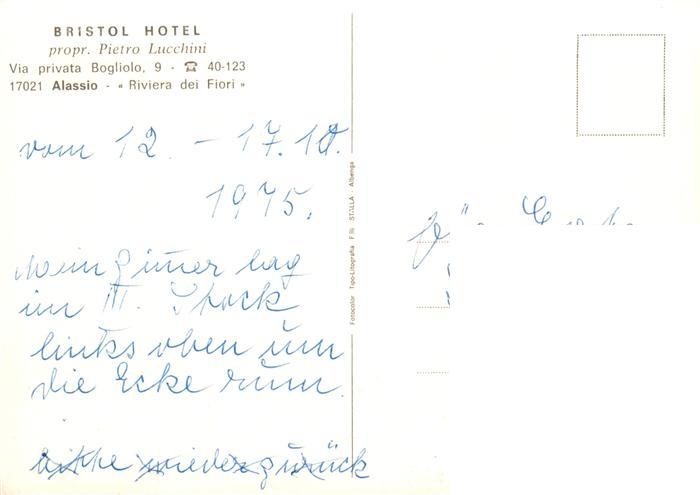 BRISTOL HOTEL
propr. Pietro Lucchini
Via privata Bogliolo, 9 - ☎ 40-123
17021 Alassio - « Riviera dei Fiori »
vom 12. - 17.10.
1975.
Mein Zimer lag
im III. Stock
links oben um
die Ecke rum.
bitte wieder zurück
Fotocolor Tipo-Litografia F.lli STALLA - Albenga
für